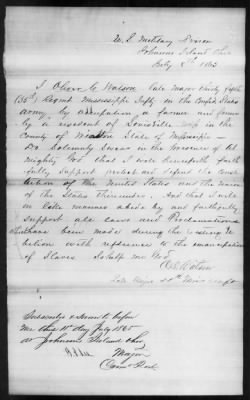 U. S. Military Prison
Johnsons Island Ohio
July 1865
I Oliver C Watson late Major thirty fifth
(35th) Regmt Mississippi Infty in the Confed States
Army by occupation a farmer and former
ly a resident of Louisville in the
County of Winston State of Mississippi
Do Solemnly Swear in the presence of Al
mighty God that I will henceforth faith
fully Support protect and defend the Const
itution of the United States and the Union
of the States thereunder. And that I will
in like manner abide by and faithfully
support all laws and Proclamations
which have been made during the existing Re
bellion with reference to the emancipation
of Slaves So help me God
O C Watson
Late Major 35th Miss
Subscribed & Sworn to before
me this 11th day July 1865
at Johnsons Island Ohio
Major